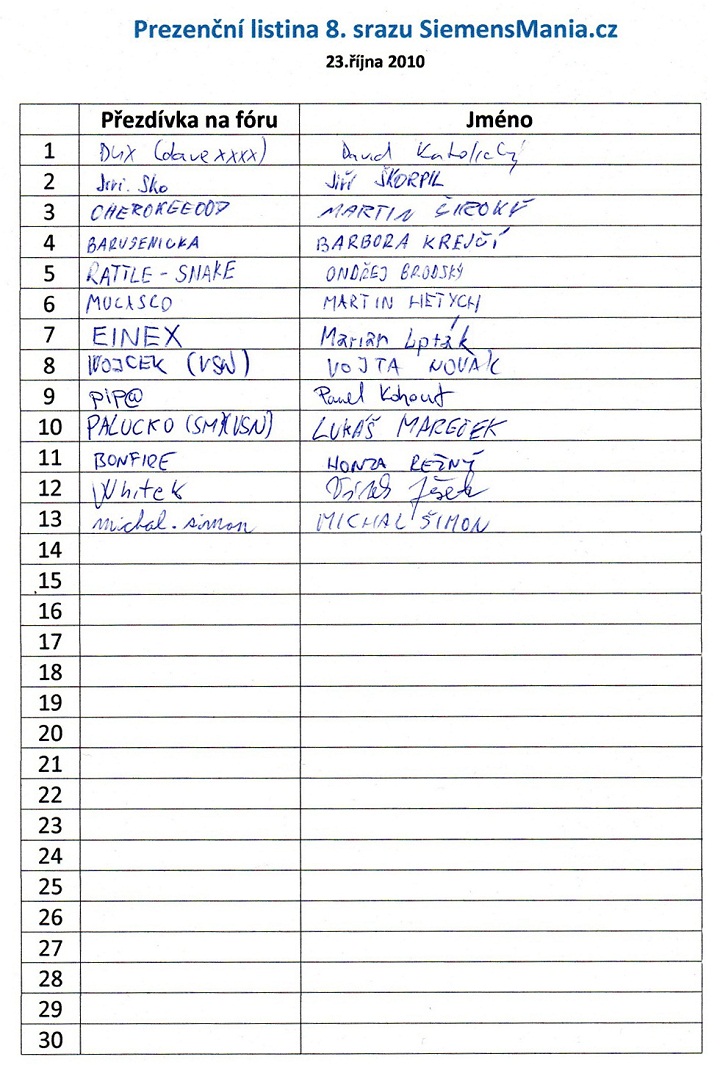 Prezenční listina 8. srazu SiemensMania.cz
23.října 2010
Přezdívka na fóru Jméno
1 DUX (davexxxx) David Katolický
2 Jiri.Sko Jiří ŠKORPIL
3 CHEROKEE007 MARTIN ŠIROKÝ
4 BARUSENICKA BARBORA KREJČÍ
5 RATTLE - SNAKE ONDŘEJ BRODSKÝ
6 MUCASCO MARTIN HETYCH
7 EINEX Marián Lipták
8 WOJCEK (VSN) VOJTA NOVÁK
9 pip@ Pavel Kohout
10 PALUCKO (SM)(VSN) LUKÁŠ MAREČEK
11 BONFIRE HONZA ŘEŽNÝ
12 Whitek
13 michal.simon MICHAL ŠIMON
14
15
16
17
18
19
20
21
22
23
24
25
26
27
28
29
30